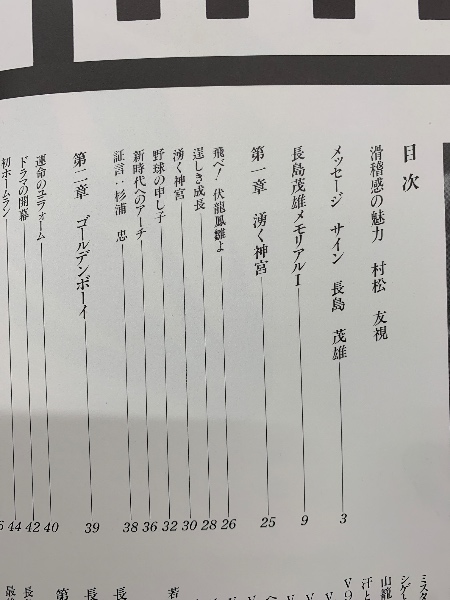 目次
滑稽感の魅力 村松 友視
メッセージ サイン 長島 茂雄 3
長島茂雄メモリアルⅠ 9
第一章 湧く神宮 25
飛べ！伏龍鳳雛よ 26
逞しき成長 28
湧く神宮 30
野球の申し子 32
新時代へのアーチ 36
証言：杉浦 忠 38
第二章 ゴールデンボーイ 39
運命のユニフォーム 40
ドラマの開幕 42
初ホームラン 44
ミスタ
シゲ
山籠
汗と
V9